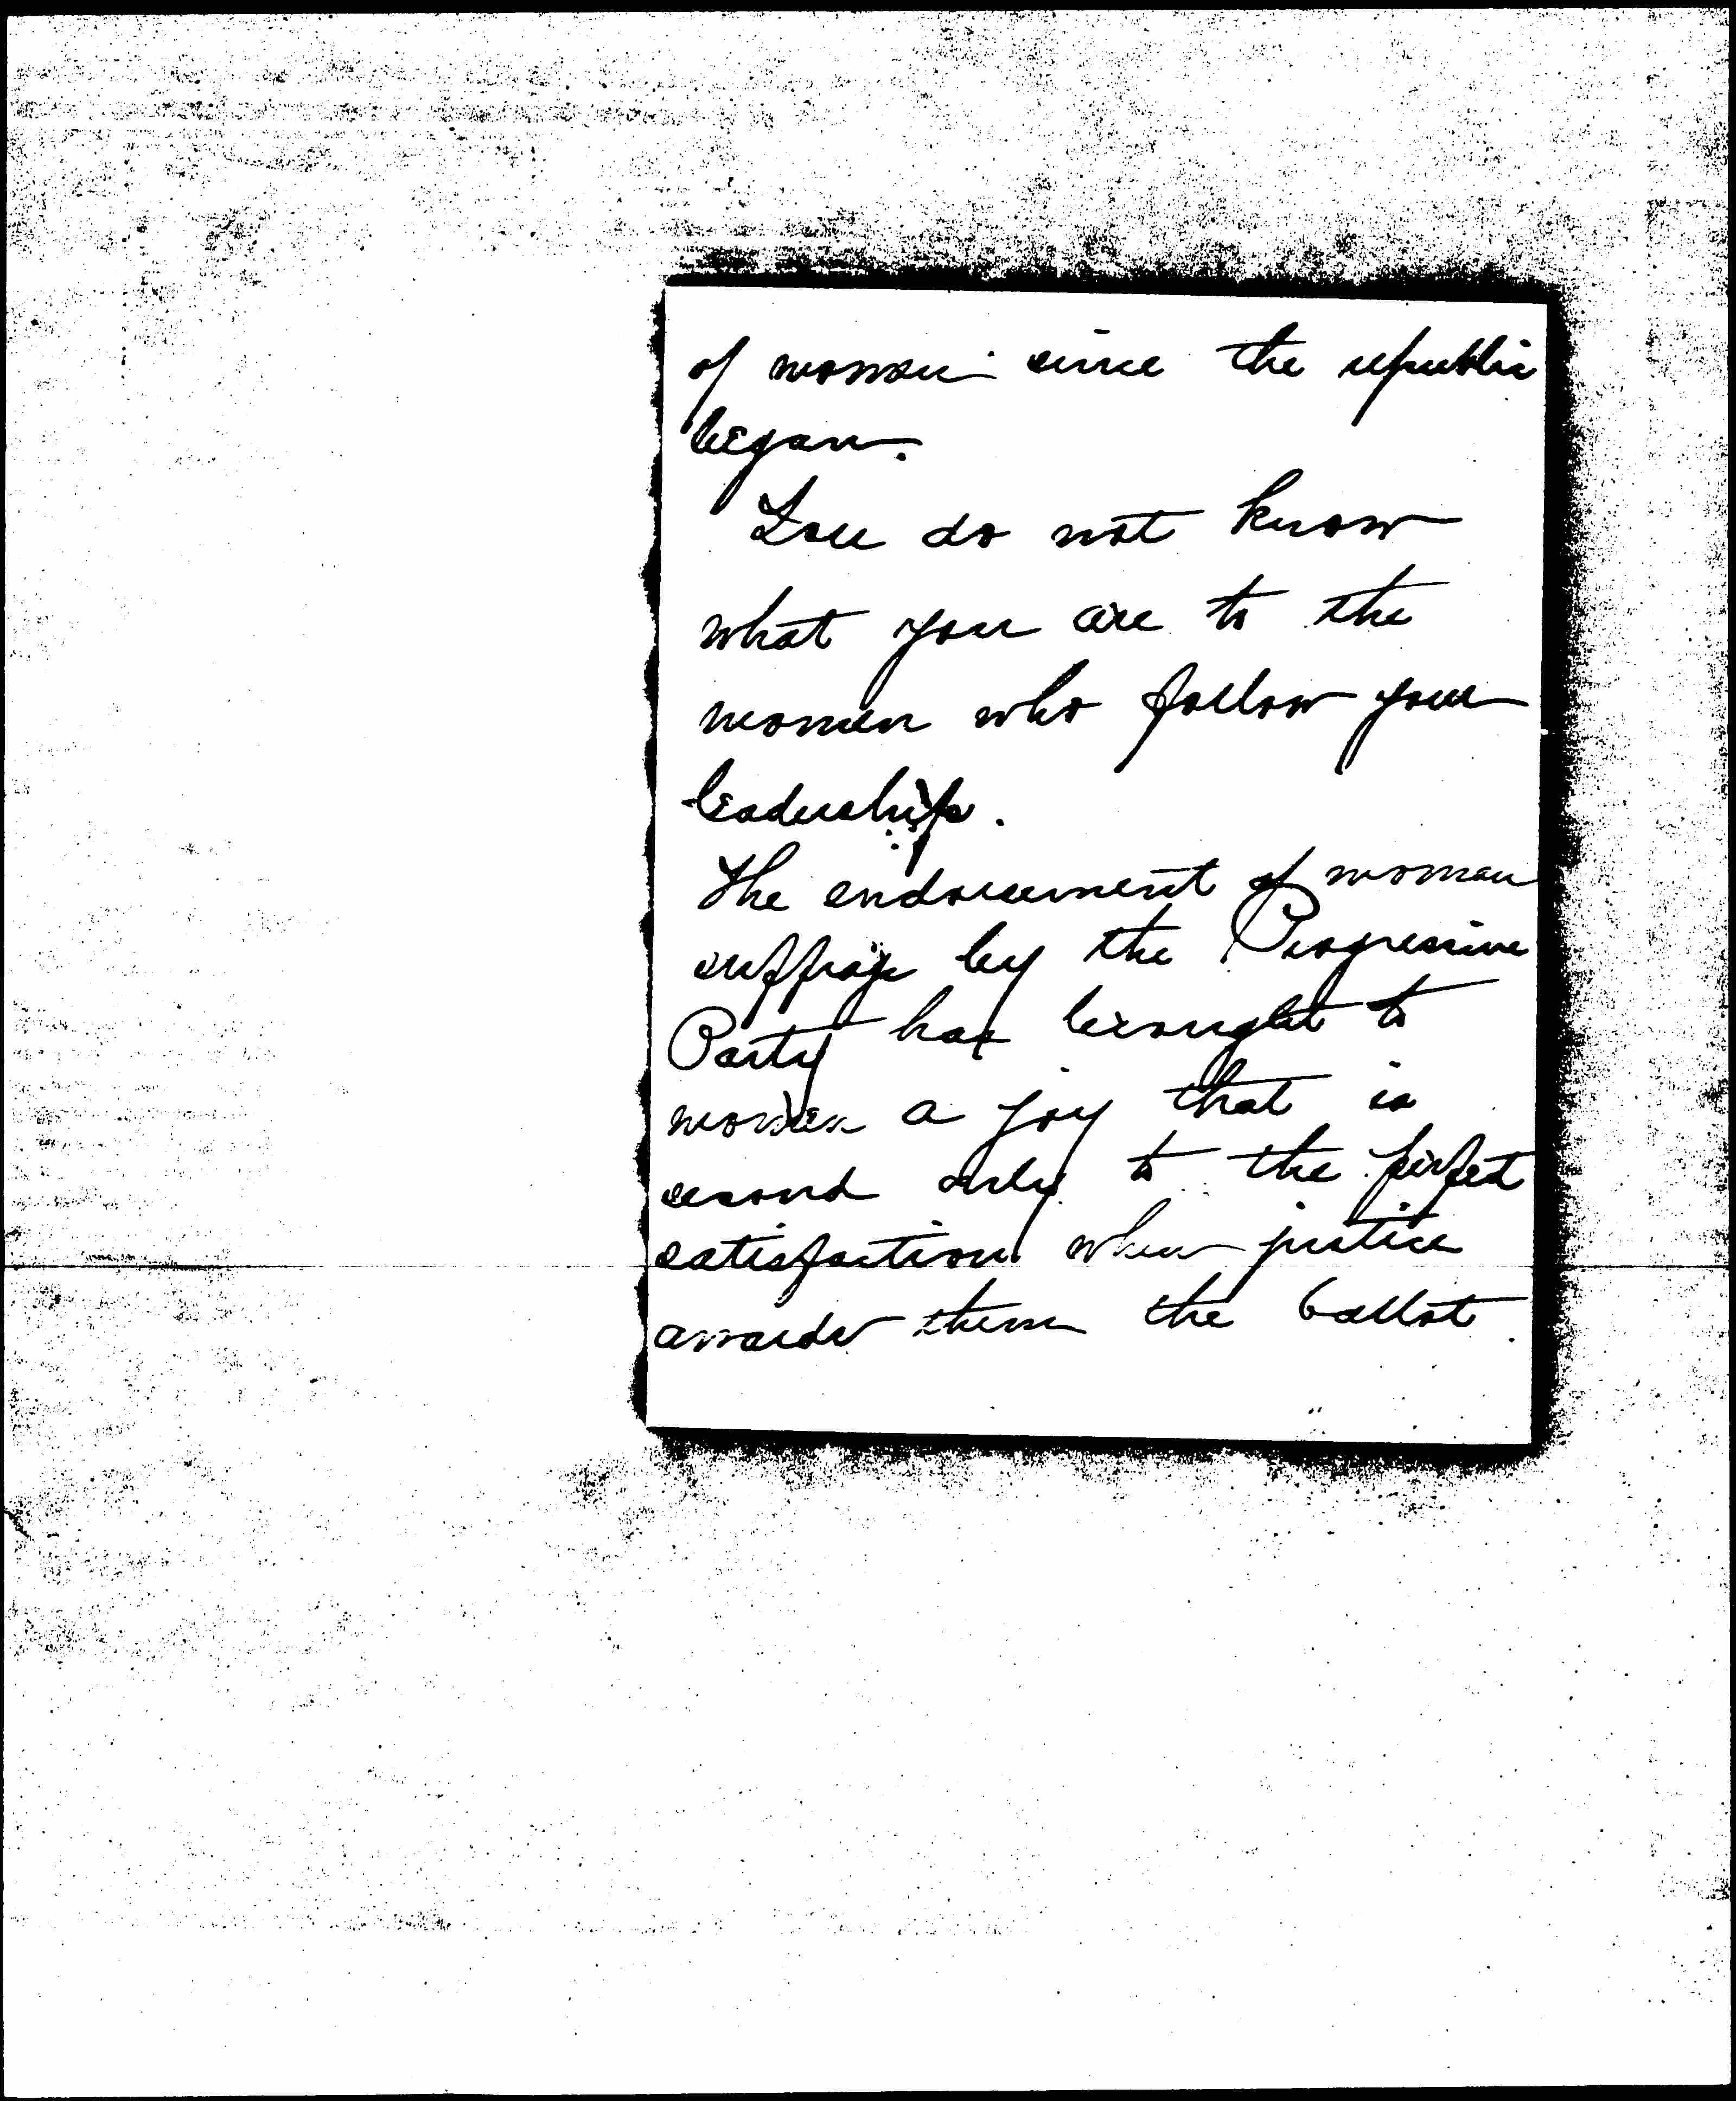 of women since the republic
began.
You do not know
what you are to the
women who follow your
leadership.
The endorsement of woman
suffrage by the Progressive
Party has brought to
women a joy that is
second only to the perfect
satisfaction when justice
awards them the ballot.